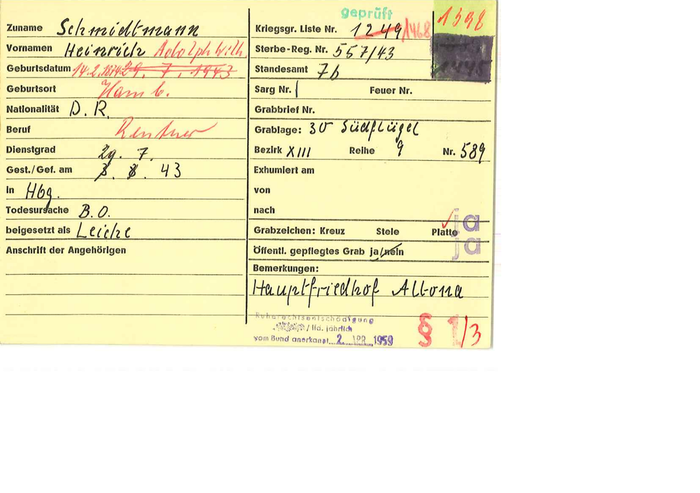 geprüft
1398
Zuname Schmidtmann
Kriegsgr. Liste Nr. 1249/1468
Vornamen Heinrich Adolph Wilh.
Sterbe-Reg. Nr. 557/43
Geburtsdatum 14.2.1874 29. 7. 1943
Standesamt 7b
Geburtsort Hamb.
Sarg Nr. Feuer Nr.
Nationalität D. R.
Grabbrief Nr.
Beruf Rentner
Grablage: 3V Südflügel
Dienstgrad 29. 7.
Bezirk XIII Reihe 9 Nr. 589
Gest./Gef. am 8. 8. 43
Exhumiert am
in Hbg.
von
Todesursache B.O.
nach
beigesetzt als Leiche
Grabzeichen: Kreuz Stele Platte ja
ja
Anschrift der Angehörigen
Öffentl. gepflegtes Grab ja/nein
Bemerkungen:
Hauptfriedhof Altona
Ruherechtsentschädigung
/ lfd. jährlich
vom Bund anerkannt 2. APR. 1959
§ 1/3